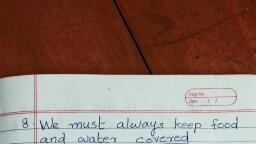 Page No.
Date / /
8. We must always keep food
and water covered